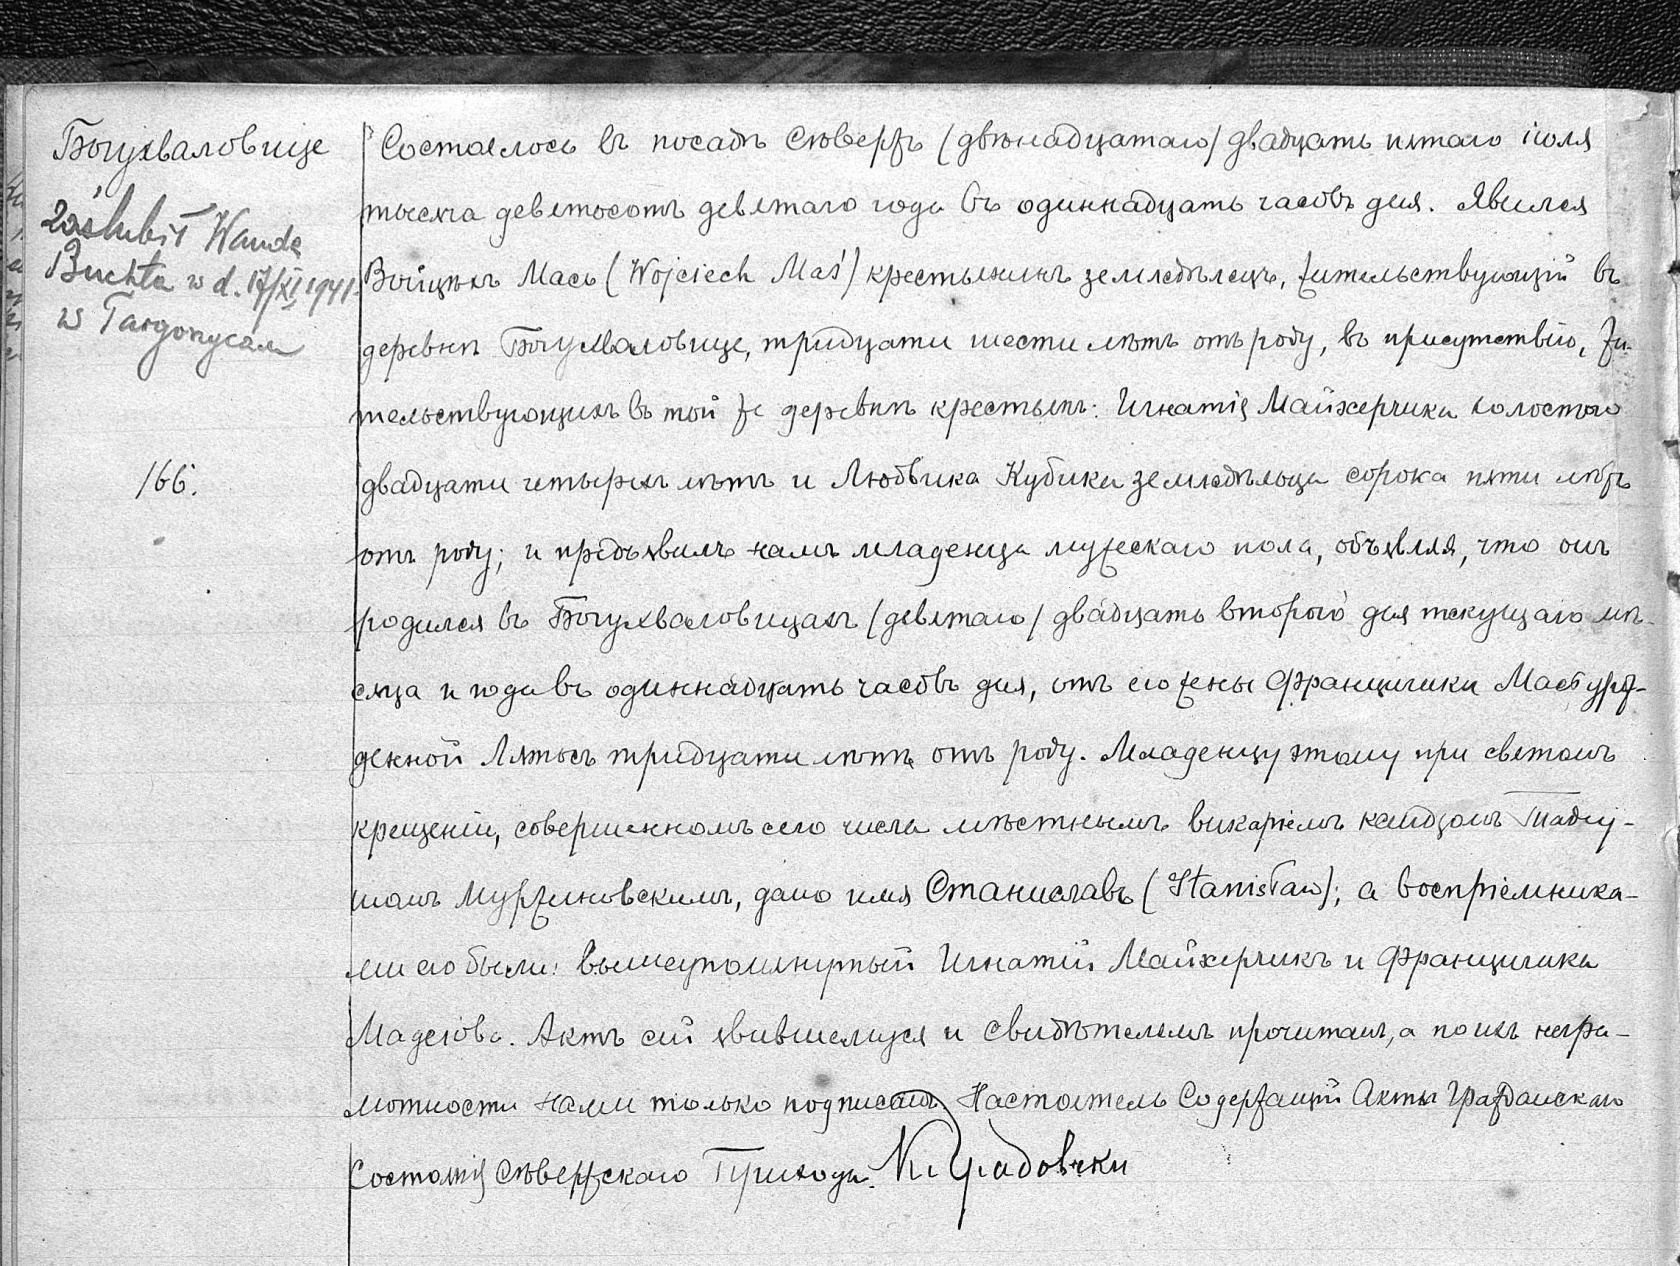 Богухваловице
zaślubił Wandę
Buchta w d. 17/XI 1941
w Targoszycach
166.
Состоялось въ посадѣ Сѣвержъ (двѣнадцатаго) двадцать пятаго іюля
тысяча девятьсотъ девятаго года въ одиннадцать часовъ дня. Явился
Войцѣхъ Мась (Wojciech Maś) крестьянинъ земледѣлецъ, жительствующій въ
деревнѣ Богухваловице, тридцати шести лѣтъ отъ роду, въ присутствіи, жи-
тельствующихъ въ той же деревнѣ крестьянъ: Игнатія Майхерчика холостого
двадцати четырехъ лѣтъ и Людвика Кубика земледѣльца сорока пяти лѣтъ
отъ роду; и предъявилъ намъ младенца мужескаго пола, объявляя, что онъ
родился въ Богухваловицахъ (девятаго) двадцать второго дня текущаго мѣ-
сяца и года въ одиннадцать часовъ дня, отъ его жены Францишки Мась урож-
денной Лятосъ тридцати лѣтъ отъ роду. Младенцу этому при святомъ
крещеніи, совершенномъ сего числа мѣстнымъ викаріемъ ксендзомъ Тадеу-
шомъ Муржиновскимъ, дано имя Станиславъ (Stanisław); а воспріемника-
ми его были: вышеупомянутый Игнатій Майхерчикъ и Францишка
Мадеіова. Актъ сей явившемуся и свидѣтелямъ прочитанъ, а по ихъ негра-
мотности нами только подписанъ. Настоятель Содержащій Акты Гражданскаго
Состоянія Сѣвержскаго Прихода.